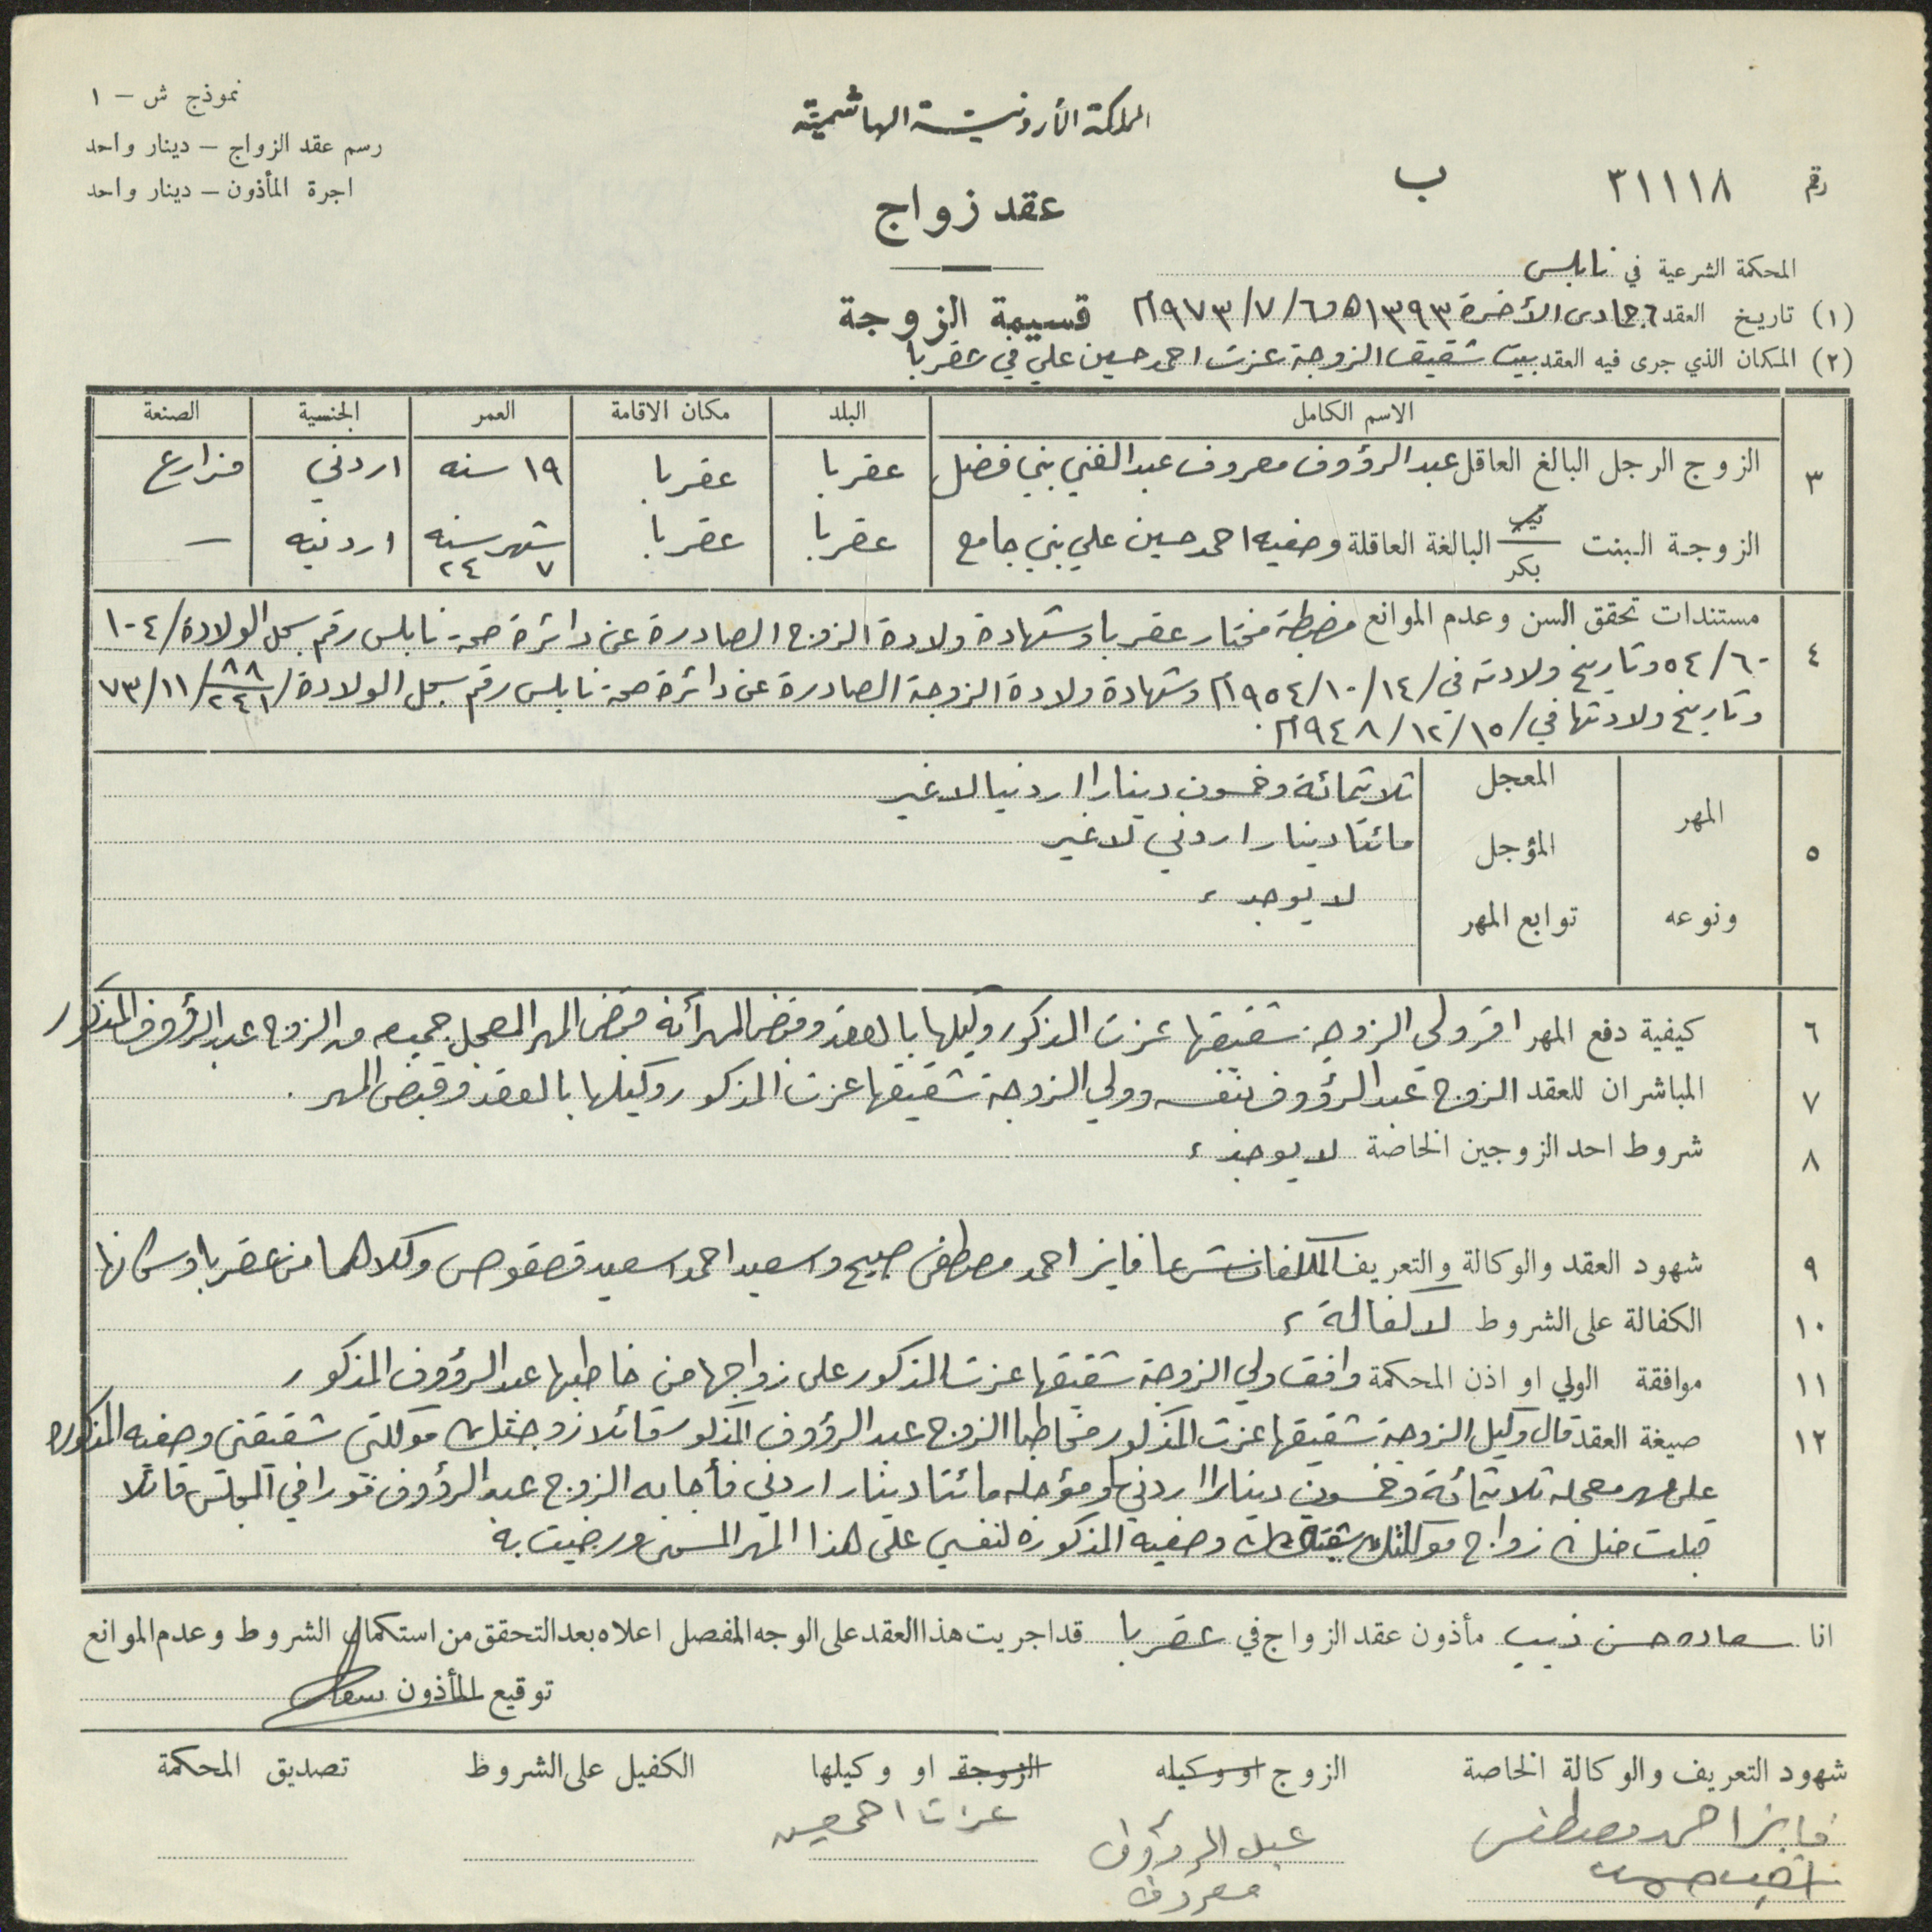 نموذج ش – ١
رسم عقد الزواج – دينار واحد
اجرة المأذون – دينار واحد
المملكة الأردنية الهاشمية
عقد زواج
رقم ٣١١١٨ ب
المحكمة الشرعية في نابلس
(١) تاريخ العقد ٦ جمادى الأخرة ١٣٩٣ھ و ٦/٧/١٩٧٣م قسيمة الزوجة
(٢) المكان الذي جرى فيه العقد بيت شقيق الزوجة عزت احمد حسين علي في عقربا
الاسم الكامل البلد مكان الاقامة العمر الجنسية الصنعة
٣ الزوج الرجل البالغ العاقل عبد الرؤوف معروف عبد الغني بني فضل عقربا عقربا ١٩ سنه اردني مزارع
الزوجة البنت ثيب بكر البالغة العاقلة وصفيه احمد حسين علي بني جامع عقربا عقربا شهر سنه ٧ ٢٤ اردنيه —
٤ مستندات تحقق السن وعدم الموانع مضبطة مختار عقربا وشهادة ولادة الزوج الصادرة عن دائرة صحة نابلس رقم سجل الولادة/١٠٤
٥٤/٦٠ وتاريخ ولادته في/١٤/١٠/١٩٥٤م وشهادة ولادة الزوجة الصادرة عن دائرة صحة نابلس رقم سجل الولادة/٨٨/٢٤١/١١/٧٣
وتاريخ ولادتها في/١٥/١٢/١٩٤٨م.
٥ المهر ونوعه
المعجل ثلاثمائة وخمسون دينارا اردنيا لا غير
المؤجل مائتا دينار اردني لا غير
توابع المهر لا يوجد ،
٦ كيفية دفع المهر اقر ولي الزوجة شقيقها عزت المذكور وكيلها بالعقد وقبض المهر أنه قبض المهر المعجل جميعه من الزوج عبد الرؤوف المذكور
٧ المباشران للعقد الزوج عبد الرؤوف بنفسه وولي الزوجة شقيقها عزت المذكور وكيلها بالعقد وقبض المهر .
٨ شروط احد الزوجين الخاصة لا يوجد ،
٩ شهود العقد والوكالة والتعريف المكلفان شرعا فايز احمد مصطفى صبيح و اسعيد احمد اسعيد قصقوص وكلاهما من عقربا وسكانها
١٠ الكفالة على الشروط لا كفالة ،
١١ موافقة الولي او اذن المحكمة وافق ولي الزوجة شقيقها عزت المذكور على زواجها من خاطبها عبد الرؤوف المذكور
١٢ صيغة العقد قال وكيل الزوجة شقيقها عزت المذكور مخاطبا الزوج عبد الرؤوف المذكور قائلا زوجتك موكلتي شقيقتي وصفيه المذكوره
على مهر معجله ثلاثمائة وخمسون دينارا اردني ومؤجله مائتا دينار اردني فأجابه الزوج عبد الرؤوف فورا في المجلس قائلا
قبلت منك زواج موكلتك شقيقتك وصفيه المذكوره لنفسي على هذا المهر المسمى ورضيت به
انا سعاده حسن ذيب مأذون عقد الزواج في عقربا قد اجريت هذا العقد على الوجه المفصل اعلاه بعد التحقق من استكمال الشروط وعدم الموانع
توقيع المأذون
شهود التعريف والوكالة الخاصة الزوج او وكيله الزوجة او وكيلها الكفيل على الشروط تصديق المحكمة
فايز احمد مصطفى عبد الرؤوف عزت احمد حسين
معروف